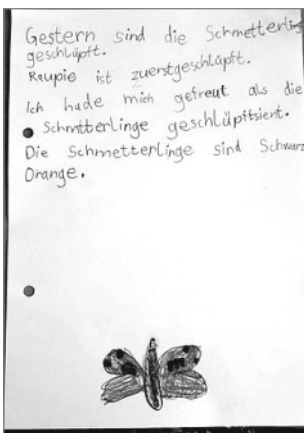 Gestern sind die Schmetterling
geschlüpft.
Raupie ist zuerstgeschlüpft.
Ich hade mich gefreut als die
Schmtterlinge geschlüpftsient.
Die Schmetterlinge sind Schwarz
Orange.